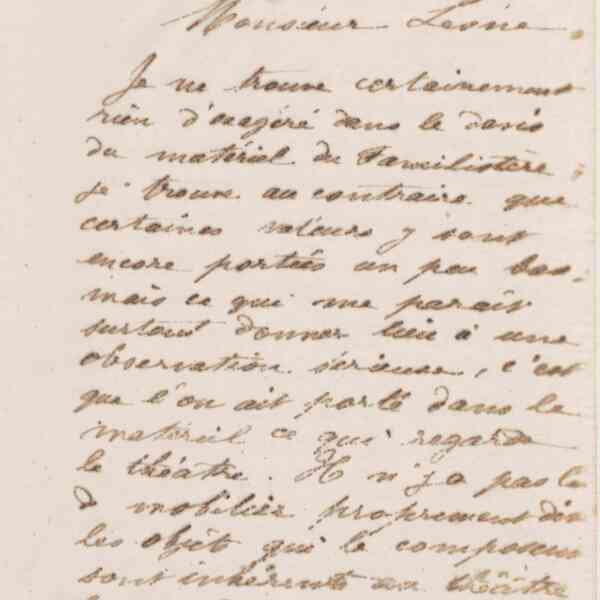 Monsieur Leoine.
Je ne trouve certainement
rien d'exagéré dans le devis
du matériel du Familistère ;
je trouve au contraire que
certaines valeurs y sont
encore portées un peu bas
mais ce qui me parait
surtout donner lieu à une
observation sérieuse, c'est
que l'on ait porté dans le
matériel ce qui regarde
le théâtre. Il n'y a pas là
d mobilier proprement dit
les objets qui le composent
sont inhérents au théâtre